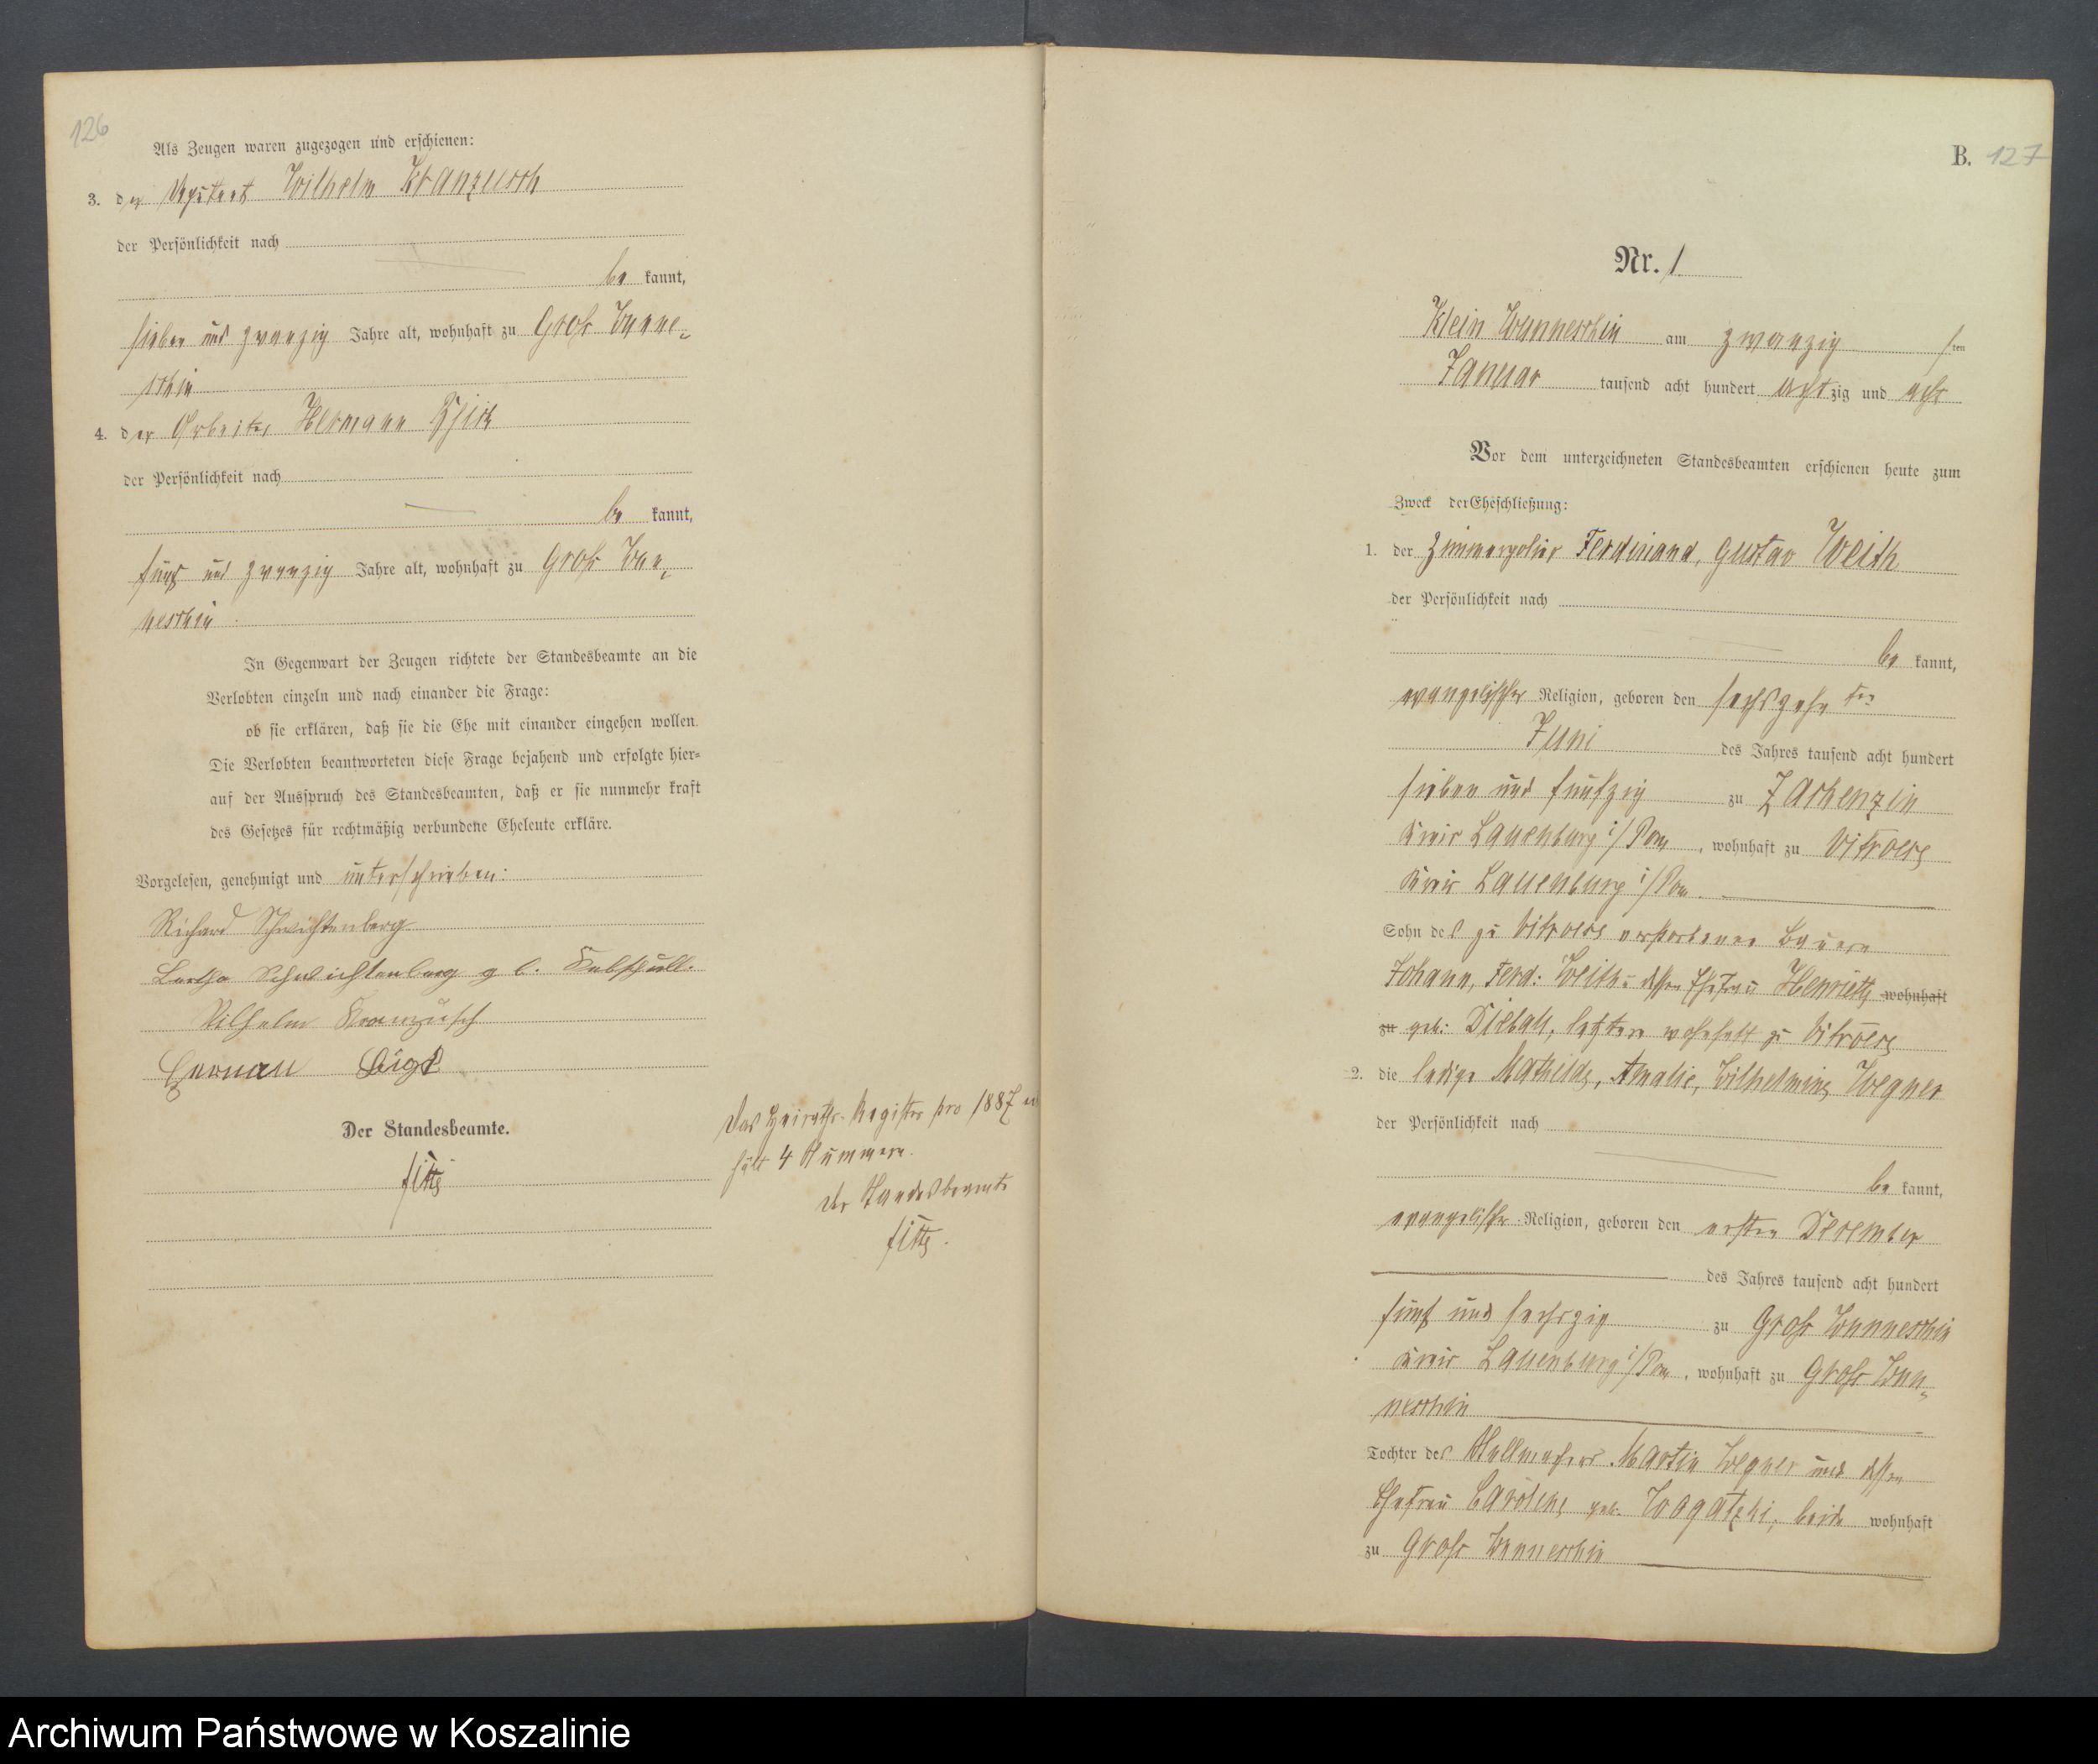 126
Als Zeugen waren zugezogen und erschienen:
3. der Wilhelm Kranzusch
der Persönlichkeit nach
be kannt,
sieben und zwanzig Jahre alt, wohnhaft zu Groß Wunne-
schin
4. der Arbeiter Hermann
der Persönlichkeit nach
be kannt,
fünf und zwanzig Jahre alt, wohnhaft zu Groß Wun-
neschin
In Gegenwart der Zeugen richtete der Standesbeamte an die
Verlobten einzeln und nach einander die Frage:
ob sie erklären, daß sie die Ehe mit einander eingehen wollen.
Die Verlobten beantworteten diese Frage bejahend und erfolgte hier-
auf der Ausspruch des Standesbeamten, daß er sie nunmehr kraft
des Gesetzes für rechtmäßig verbundene Eheleute erkläre.
Vorgelesen, genehmigt und unterschrieben:
Richard Schwichtenberg
Schwichtenberg
Wilhelm Kranzusch
Der Standesbeamte.
Das Heiraths-Register pro 1887
hält 4 Nummern.
Der Standesbeamte
B. 127
Nr. 1
Klein Wunneschin am zwanzig sten
Januar tausend acht hundert achtzig und acht
Vor dem unterzeichneten Standesbeamten erschienen heute zum
Zweck der Eheschließung:
1. der Zimmerpolier Ferdinand, Gustav Weith
der Persönlichkeit nach
be kannt,
evangelischer Religion, geboren den sechszehn ten
Juni des Jahres tausend acht hundert
sieben und fünfzig zu Zackenzin
Kreis Lauenburg i/Pom, wohnhaft zu Vitroese
Kreis Lauenburg i/Pom.
Sohn des zu Vitroese verstorbenen Bauern
Johann, Ferd. Weith u. dessen Ehefrau Henriette wohnhaft
zu geb. Diebau, letztere wohnhaft zu Vitroese
2. die ledige Mathilde, Amalie, Wilhelmine Wegner
der Persönlichkeit nach
be kannt,
evangelischer Religion, geboren den ersten Dezember
des Jahres tausend acht hundert
fünf und sechszig zu Groß Wunneschin
Kreis Lauenburg i/Pom, wohnhaft zu Groß Wun-
neschin
Tochter des Stellmachers Martin Wegner und dessen
Ehefrau Caroline geb. Wogatzki, beide wohnhaft
zu Groß Wunneschin
Archiwum Państwowe w Koszalinie